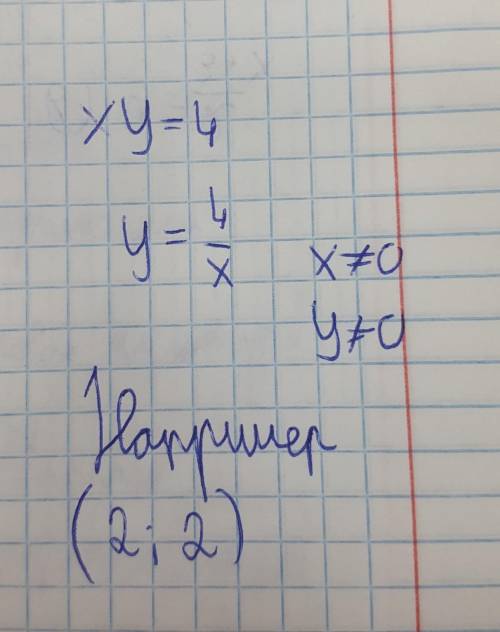 xy = 4
y = 4/x
x ≠ 0
y ≠ 0
Например
(2; 2)